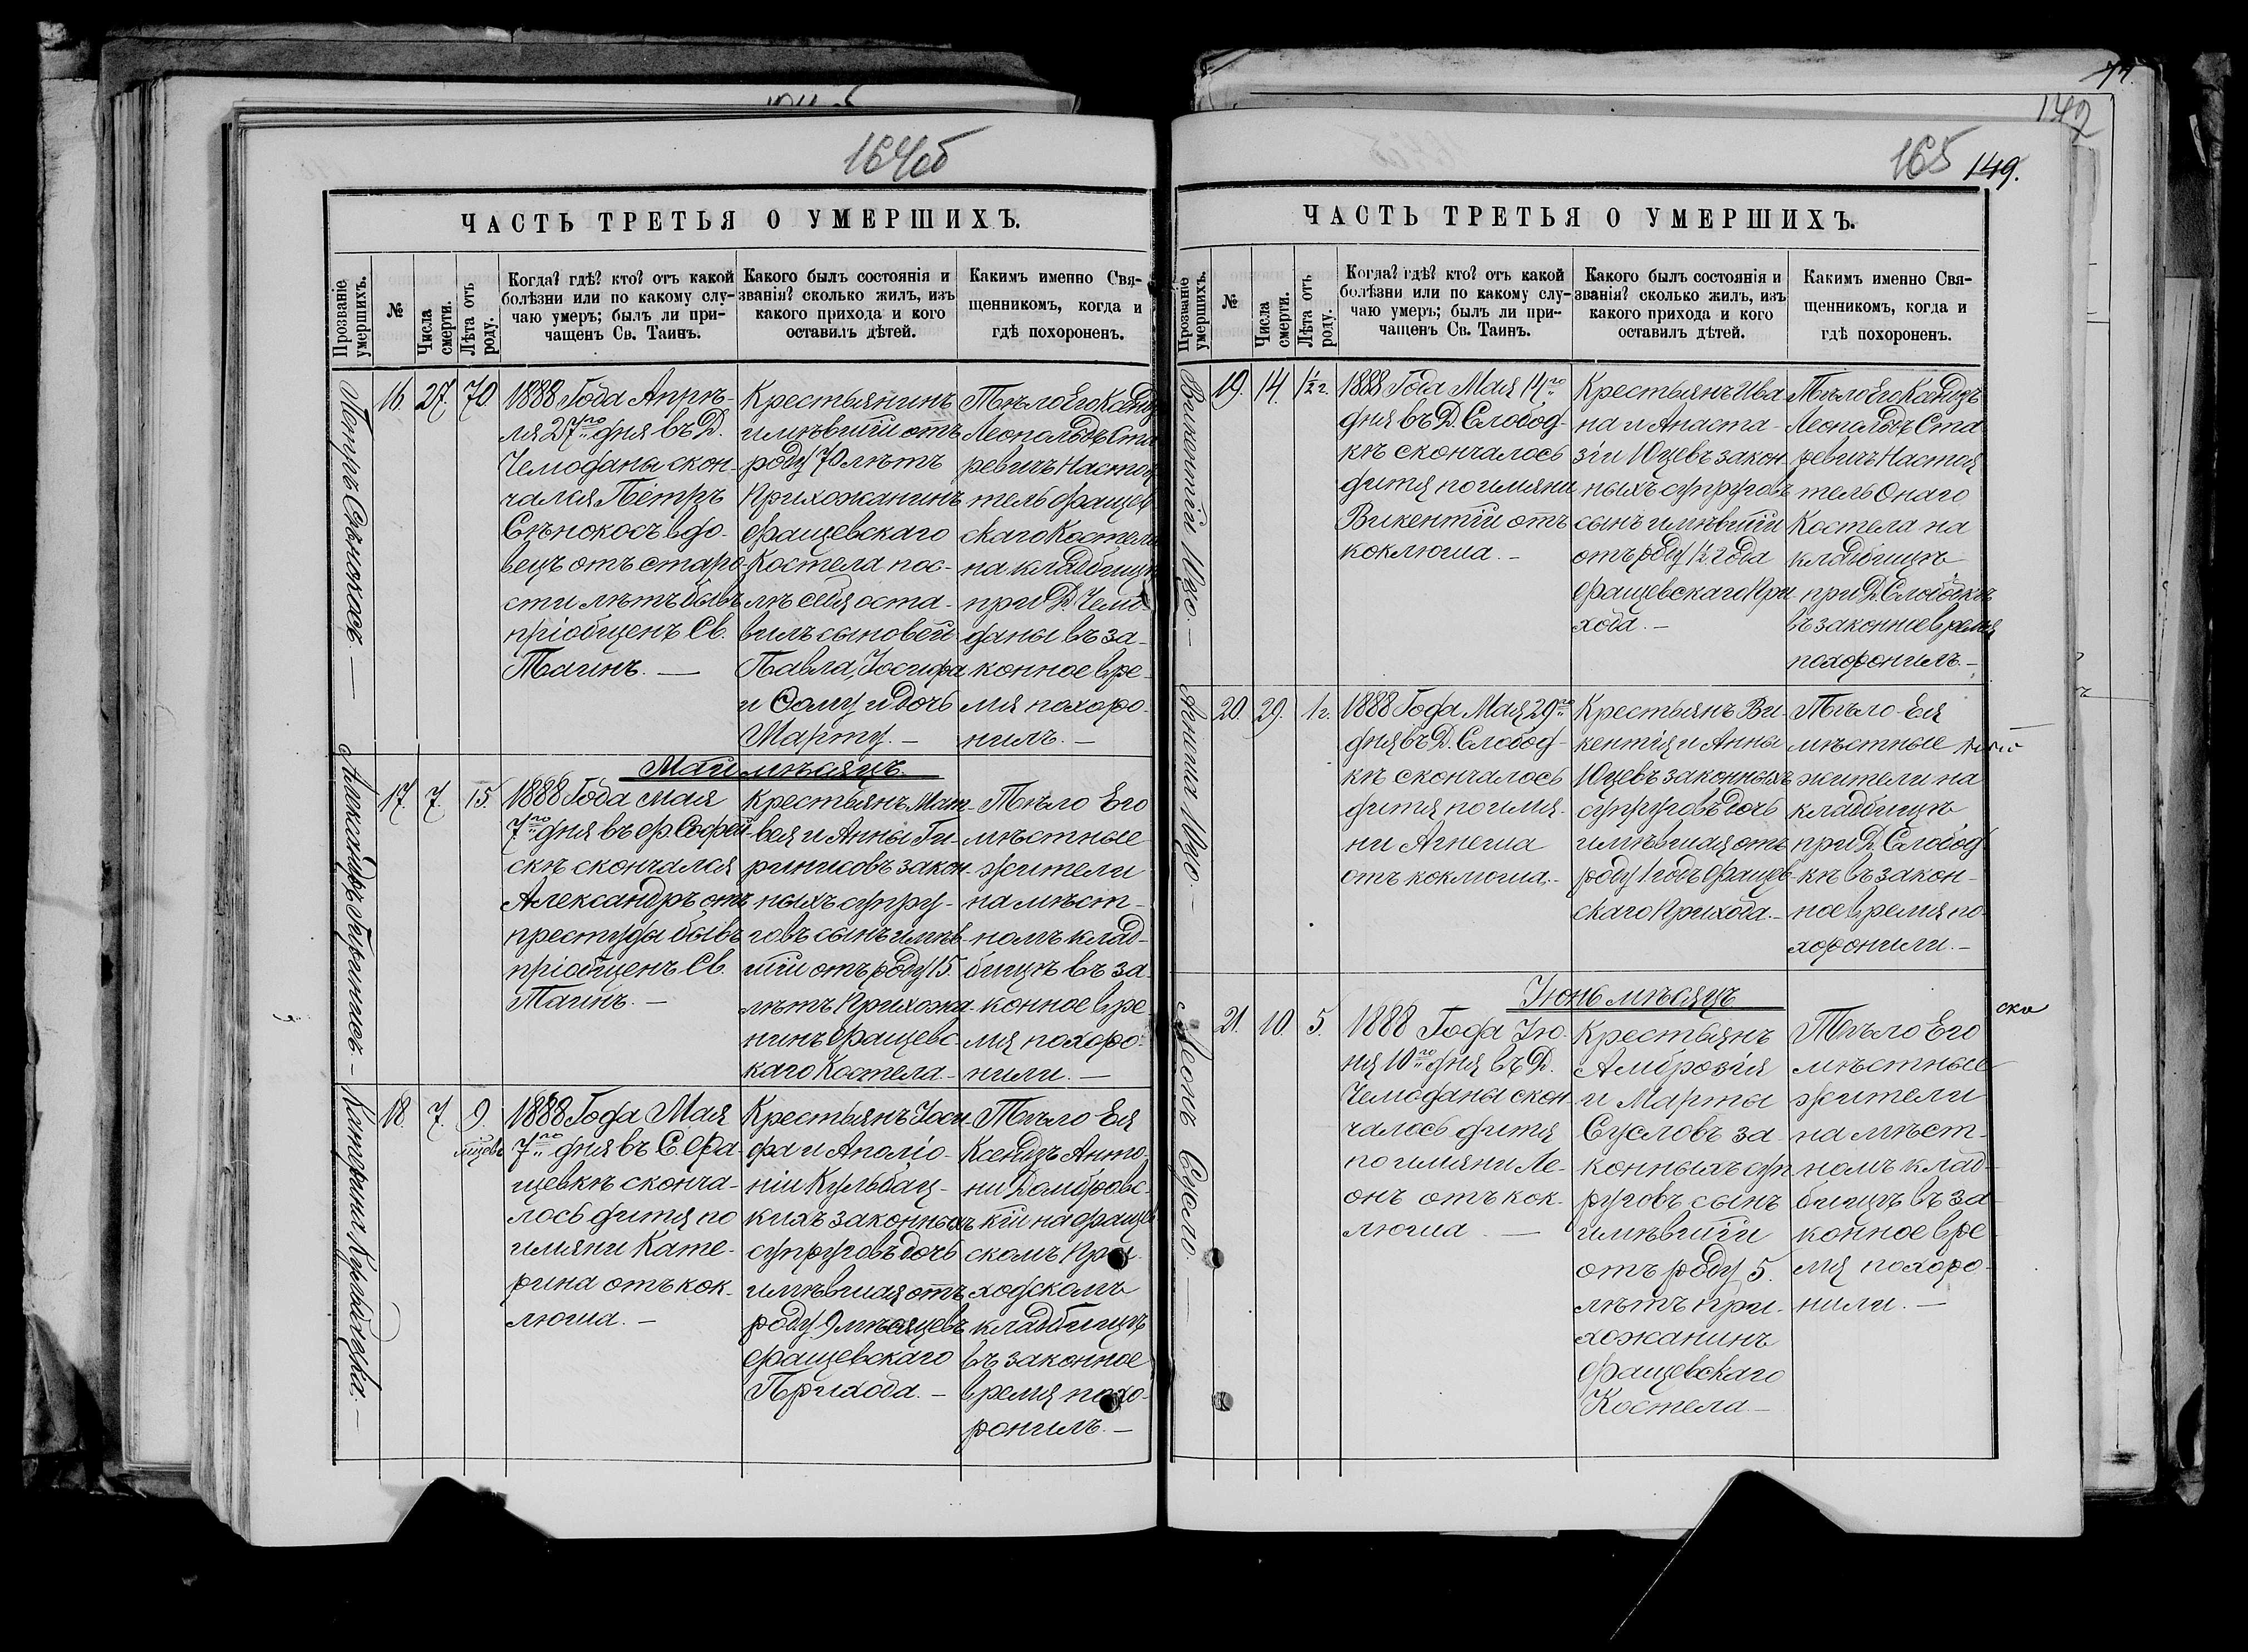 164об
ЧАСТЬ ТРЕТЬЯ О УМЕРШИХЪ.
Прозваніе умершихъ.
№
Числа смерти.
Лѣта отъ роду.
Когда? гдѣ? кто? отъ какой
болѣзни или по какому слу-
чаю умеръ; былъ ли при-
чащенъ Св. Таинъ.
Какого былъ состоянія и
званія? сколько жилъ, изъ
какого прихода и кого
оставилъ дѣтей.
Какимъ именно Свя-
щенникомъ, когда и
гдѣ похороненъ.
Петръ Сѣнокосъ. —
16.
27.
70
1888 Года Апрѣ-
ля 27го дня въ Д.
Чемоданы скон-
чался Петръ
Сѣнокосъ вдо-
вецъ отъ старо-
сти лѣтъ бывъ
пріобщенъ Св.
Таинъ. —
Крестьянинъ
имѣвшій отъ
роду 70 лѣтъ
Прихожанинъ
Фащевскаго
Костела пос-
лѣ себя оста-
вилъ сыновей
Павла, Іосифа
и Ѳому и дочь
Марту. —
Тѣло Его Ксендзъ
Леопольдъ Ста
ревичъ Настоя
тель Фащев
скаго Костела
на кладбищѣ
при Д. Чемо
даны въ за-
конное вре-
мя похоро-
нилъ. —
Май мѣсяцъ.
17.
7.
15.
1888 Года Мая
7го дня въ ф. Софей
скѣ скончался
Александръ отъ
престуды бывъ
пріобщенъ Св.
Таинъ. —
Крестьянъ Мат-
вея и Анны Ги-
ринисовъ закон-
ныхъ супру-
говъ сынъ имѣв-
шій отъ роду 15
лѣтъ Прихожа-
нинъ Фащевс-
каго Костела. —
Тѣло Его
мѣстные
жители
на мѣст-
номъ клад-
бищѣ въ за-
конное вре-
мя похоро-
нили. —
18.
7.
9.
1888 Года Мая
7го дня въ С. Фа-
щевкѣ сконча-
лось дитя по
имяни Кате-
рина отъ кок-
люша. —
Крестьянъ Іоси-
фа и Аполіо-
ніи Кульбац-
кихъ законныхъ
супруговъ дочь
имѣвшая отъ
роду 9 мѣсяцевъ
Фащевскаго
Прихода. —
Тѣло Ея
Ксендзъ Анто-
ни Домбровс-
кій на Фащев
скомъ При-
ходскомъ
кладбищѣ
въ законное
время похо-
ронилъ. —
165
149.
ЧАСТЬ ТРЕТЬЯ О УМЕРШИХЪ.
Прозваніе умершихъ.
№
Числа смерти.
Лѣта отъ роду.
Когда? гдѣ? кто? отъ какой
болѣзни или по какому слу-
чаю умеръ; былъ ли при-
чащенъ Св. Таинъ.
Какого былъ состоянія и
званія? сколько жилъ, изъ
какого прихода и кого
оставилъ дѣтей.
Какимъ именно Свя-
щенникомъ, когда и
гдѣ похороненъ.
19.
14.
½ г.
1888 Года Мая 14го
дня въ Д. Слобод-
кѣ скончалось
дитя по имяни
Викентій отъ
коклюша. —
Крестьянъ Ива
на и Анаста-
зіи Юцевъ закон-
ныхъ супруговъ
сынъ имѣвшій
отъ роду ½ года
Фащевскаго При-
хода. —
Тѣло Его Ксендзъ
Леопольдъ Ста
ревичъ Настоя
тель Онаго
Костела на
кладбищѣ
при Д. Слободкѣ
въ законное время
похоронилъ. —
20.
29.
1 г.
1888 Года Мая 29го
дня въ Д. Слобод-
кѣ скончалось
дитя по имя-
ни Агнеша
отъ коклюша. —
Крестьянъ Ви-
кентія и Анны
Юцевъ законныхъ
супруговъ дочь
имѣвшая отъ
роду 1 годъ Фащев-
скаго Прихода. —
Тѣло Ея
мѣстные
жители на
кладбищѣ
при Д. Слобод
кѣ въ закон-
ное время по-
хоронили. —
Іюнь мѣсяцъ
Леонъ Сусло. —
21.
10.
5.
1888 Года Ію-
ня 10го дня въ Д.
Чемоданы скон-
чалось дитя
по имяни Ле-
онъ отъ кок-
люша —
Крестьянъ
Амброзія
и Марты
Сусловъ за-
конныхъ суп
руговъ сынъ
имѣвшій
отъ роду 5.
лѣтъ при-
хожанинъ
Фащевскаго
Костела —
Тѣло Его
мѣстные
жители
на мѣст-
номъ клад-
бищѣ въ за-
конное вре-
мя похоро-
нили. —